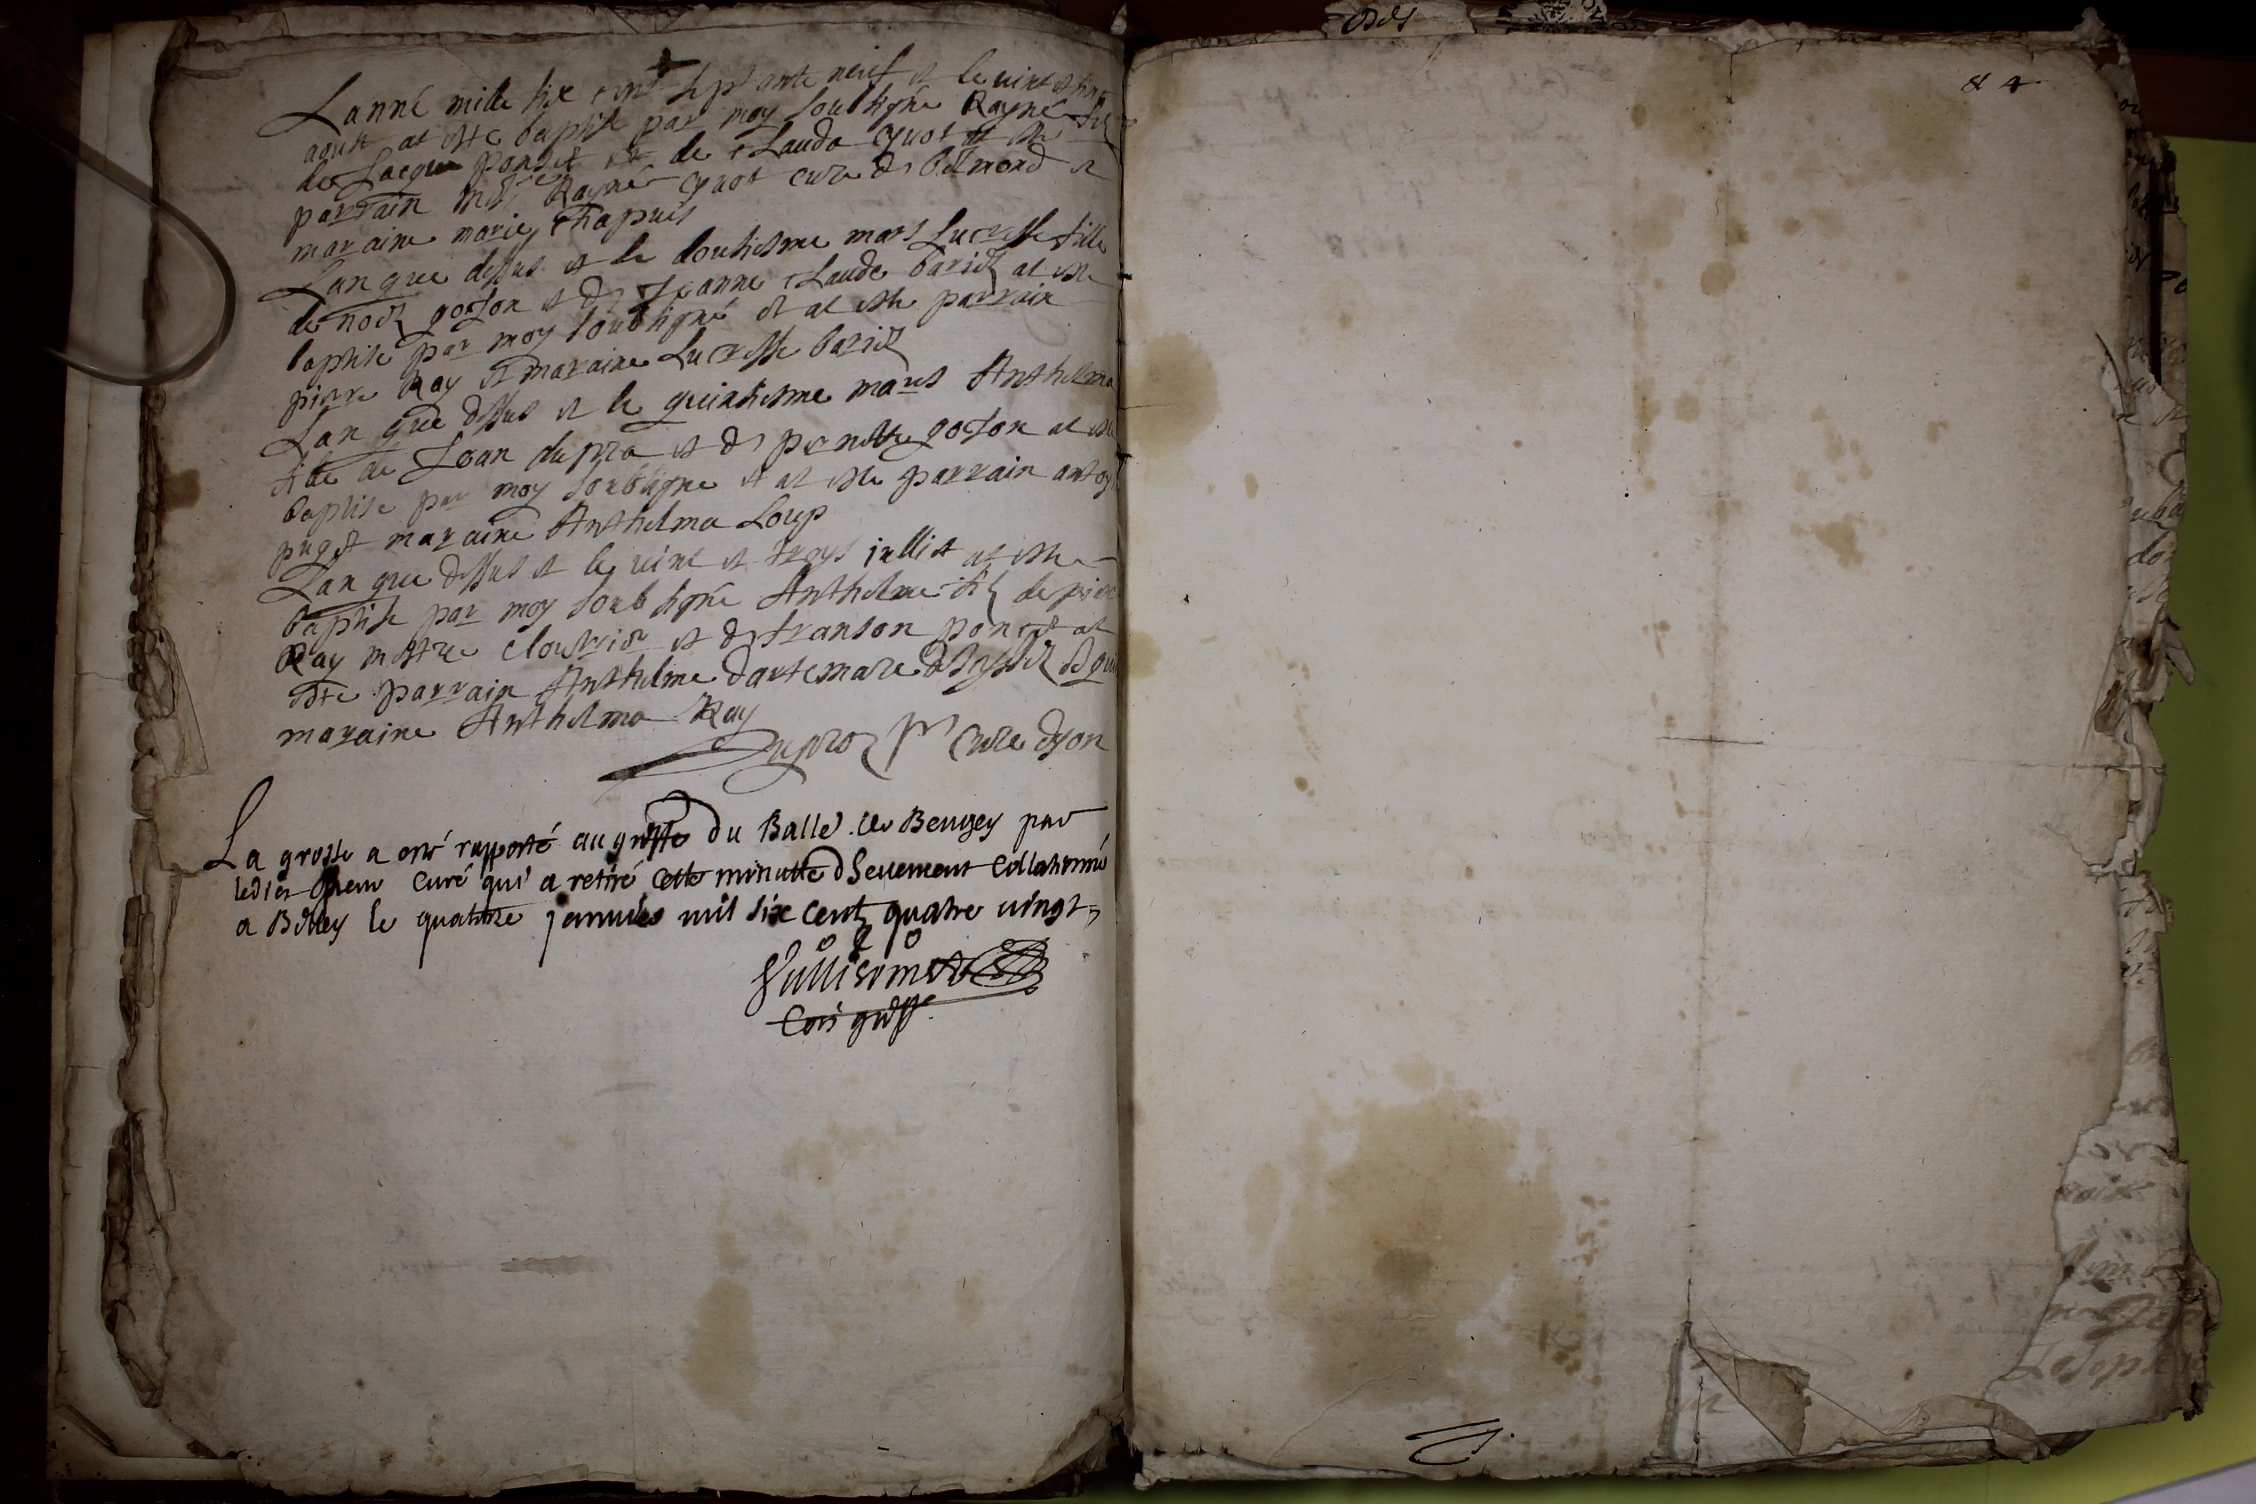 Lanné mille six cent septante neuf et le vint et sinc
aoust at esté baptisé par moy soubsigné Rayné filz
de Jacque ponset et de Clauda Cyuot et esté
parrain Rayné Cyuot cure de belmond et
maraine marie Chapuis
Lan que dessus et le doutiesme mars Lucresse fille
de noel gojon et de Jeanne Claude bariel at esté
baptisé par moy soubsigné et at esté parrain
pierre Ray et maraine Lucresse bariel
Lan que dessus et le quintiesme mars Anthelma
fille de Joan dupra et de pernette gojon at esté
baptisé par moy soubsigne et at esté parrain antoy
puget maraine Anthelma Loup
Lan que dessus et le vint et troys jullist at esté
baptisé par moy soubsigné Anthelme filz de pierre
Ray mestre clouttier et de franson poncet at
esté parrain Anthelme dartemare
maraine Anthelma Ray
Dupraz pr Cure dyon
La grosse a esté rapporté au greffe du Balle de Beugey par
ledict sieur curé qui a retiré cette minutte dheuement Collationné
a Belley le quattre janvier mil six centz quatre vingt
Cois greff.
84